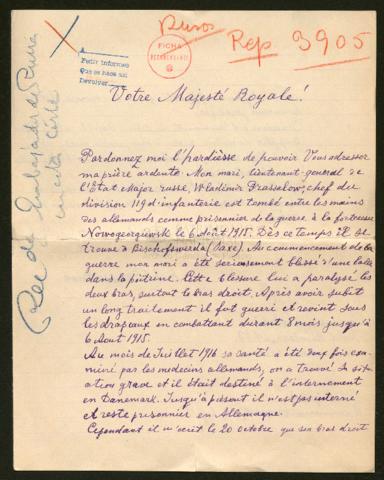 Rusos
Rep 3905
FICHA
6
Pedir informes
Que se haga un
Devolver
Rec da Embajador de Rusia
en esta Corte
Votre Majesté Royale!
Pardonnez moi l'hardiesse de pouvoir Vous adresser
ma prière ardente. Mon mari, lieutenant-général de
l'État Major russe, Wladimir Prassalow, chef du
division 119 d'infanterie est tombé entre les mains
des allemands comme prisonnier de la guerre à la forteresse
Nowogeorgiewsk le 6 Août 1915. Dès ce temps il se
trouve à Bischofswerda (Saxe). Au commencement de la
guerre mon mari a été sérieusement blessé d'une balle
dans la poitrine. Cette blessure lui a paralysé les
deux bras, surtout le bras droit. Après avoir subit
un long traitement il fut guerri et revint sous
les drapeaux en combattant durant 8 mois jusqu'à
6 Août 1915.
Au mois de Juillet 1916 sa santé a été deux fois exa-
miné par les medecins allemands, on a trouvé sa situ-
ation grave et il était destiné à l'internement
en Danemark. Jusqu'à présent il n'est pas interné
et reste prisonnier en Allemagne.
Cependant il m'écrit le 20 octobre que son bras droit